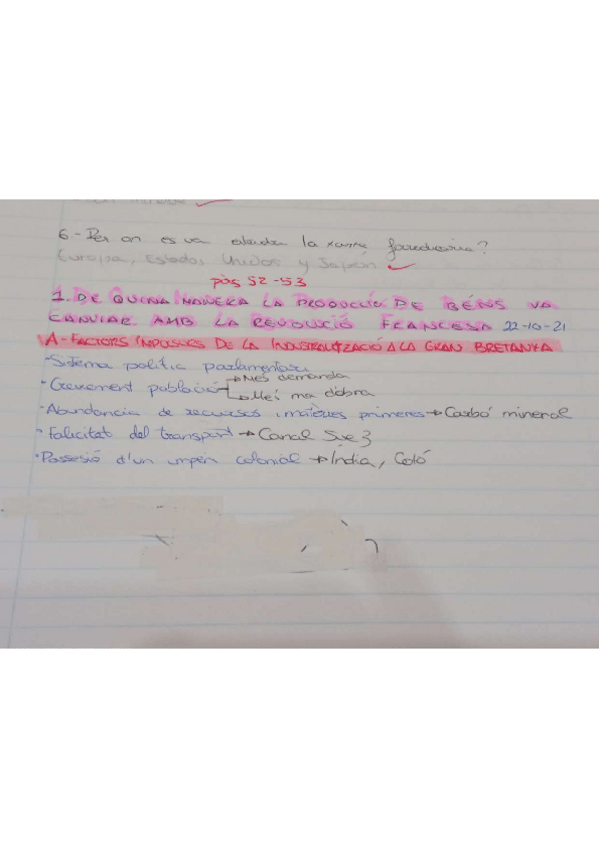 6-Per on es va la xarxa ferroviaria?
Europa, Estados Unidos y Japón
pàs 52-53
1. DE QUINA MANERA LA PRODUCCIÓ DE BÉNS VA
CANVIAR AMB LA REVOLUCIÓ FRANCESA 22-10-21
A-FACTORS IMPULSORS DE LA INDUSTRALITZACIÓ A LA GRAN BRETANYA
-Sistema polític parlamentari
-Creixement població → Més demanda
→ Més ma d'obra
-Abundancia de recursos i matèries primeres → Carbó mineral
-Falicitat del transport → Canal Suez
-Possesió d'un imperi colonial → India, Cotó